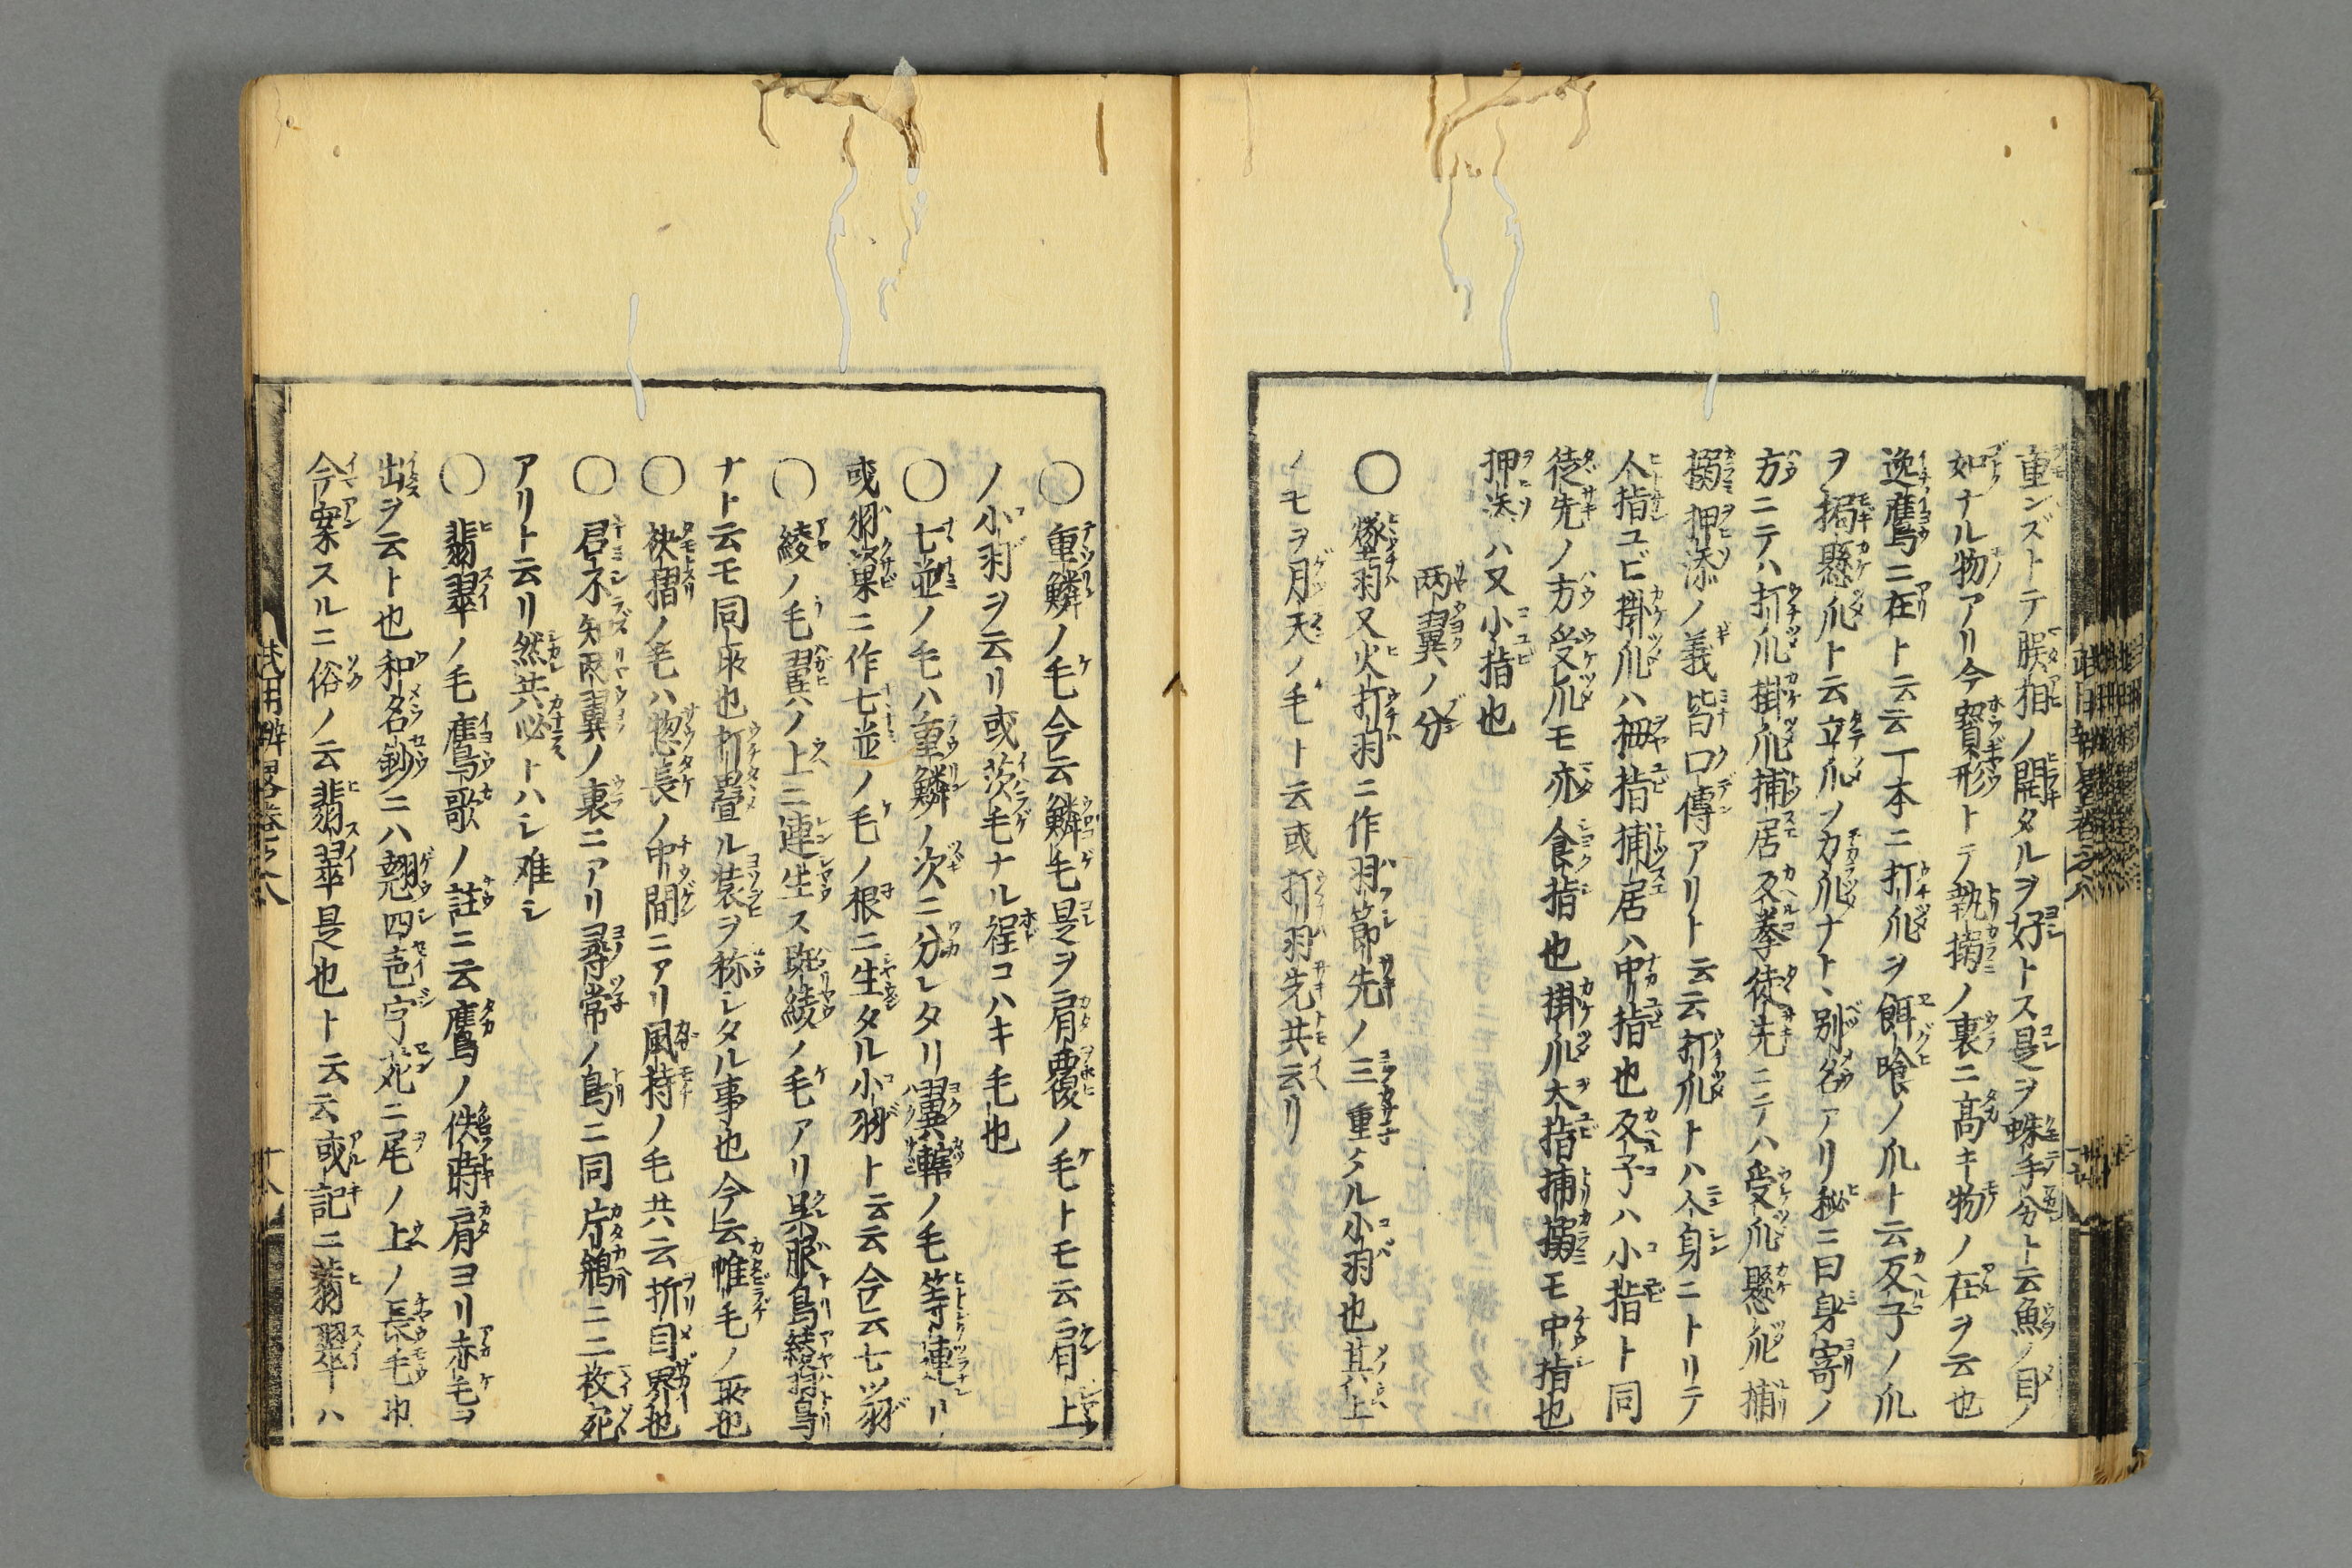 重ンズトテ脵相ノ開タルヲ好トス是ヲ蛛手分ト云魚ノ目ノ
如ナル物アリ今寳形トテ執搦ノ裏ニ高キ物ノ在ヲ云也
逸鷹ニ在ト云云丁本ニ打爪ヲ餌喰ノ爪ト云反子ノ爪
ヲ搦懸爪ト云立爪ノ力爪ナト、別名アリ秘ニ曰身寄ノ
方ニテハ打爪掛爪捕居反拳徒先ニテハ受爪懸爪捕
搦押添ノ義皆口傳アリト云云打爪トハ人身ニトリテ
人指ユビ掛爪ハ拇指捕居ハ中指也反子ハ小指ト同
徒先ノ方受爪モ亦食指也掛爪大指捕搦モ中指也
押送ハ又小指也
両翼ノ分
〇燧羽又火打羽ニ作羽節先ノ三重タル小羽也其上
ノモヲ月天ノ毛ト云或打羽先共云リ
〇重鱗ノ毛今云鱗毛是ヲ肩覆ノ毛トモ云肩上
ノ小羽ヲ云リ或茨毛ナル程コハキ毛也
〇七並ノ毛ハ重鱗ノ次ニ分レタリ翼轄ノ毛等連リ
或羽滋ニ作七並ノ毛ノ根ニ生タル小羽ト云云今云七ツ羽
〇綾ノ毛翼ノ上ニ連生ス斑綾ノ毛アリ呉服鳥綾羽鳥
ナト云モ同上也打疊ル装ヲ称シタル事也今云帷毛ノ
〇袂摺ノ毛ハ惣長ノ中間ニアリ風持ノ毛共云折目界也
〇君不知両翼ノ裏ニアリ尋常ノ鳥ニ同片鵜ニ二枚宛
アリト云リ然共必トハシ难シ
〇翡翠ノ毛鷹歌ノ註ニ云鷹ノ佚時肩ヨリ赤毛ヲ
出ヲ云ト也和名鈔ニハ翹四声字苑ニ尾ノ上ノ長毛也
今案スルニ俗ノ云翡翠是也ト云云或記ニ翡翠ハ
武用辨畧巻之八
十八